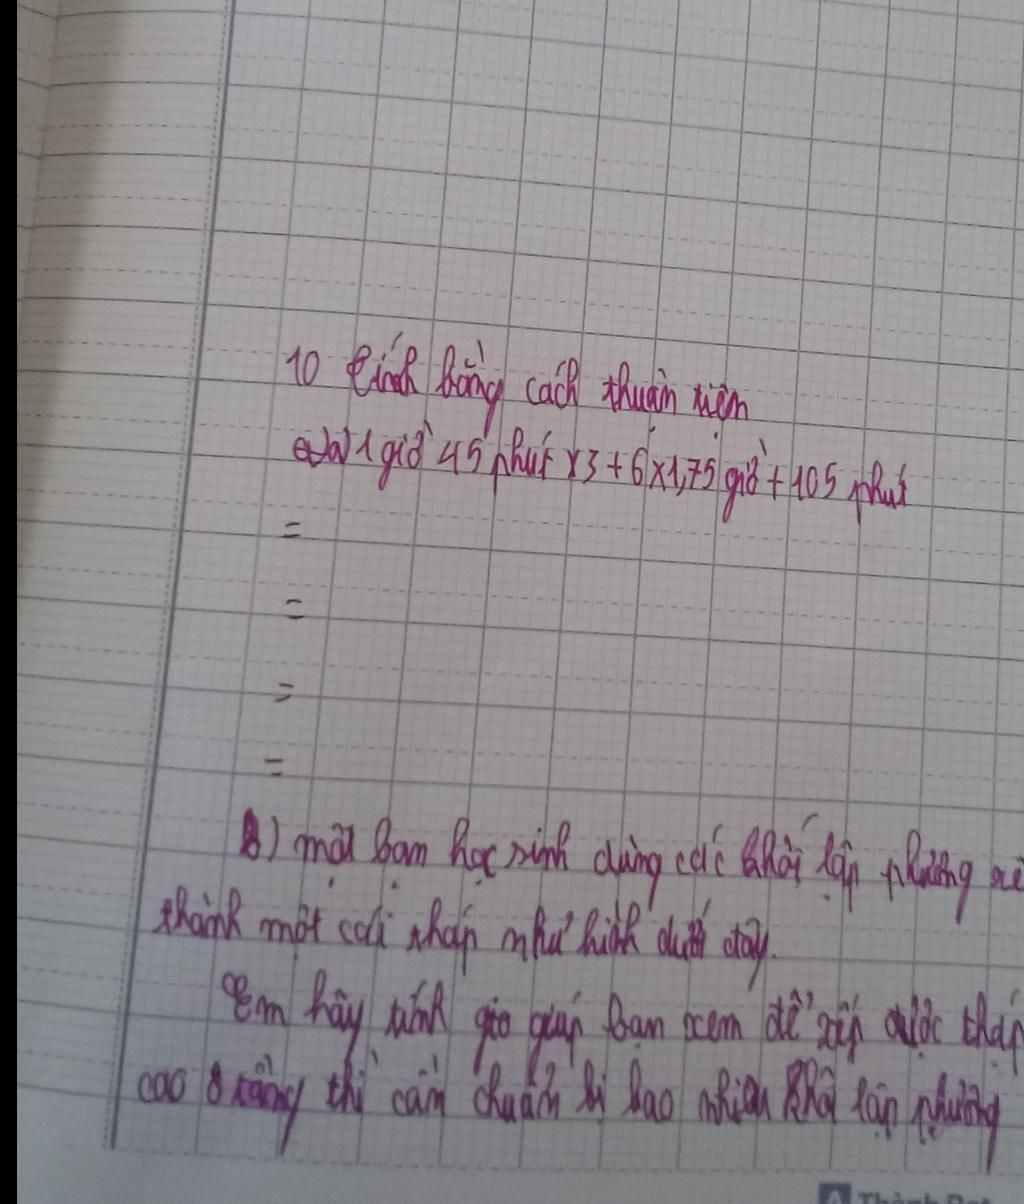 10 Tính bằng cách thuận tiện
a) 1 giờ 45 phút x 3 + 6 x 1,75 giờ + 105 phút
=
=
=
=
B) một bạn học sinh dùng các khối lập phương xế
thành một cái tháp như hình dưới đây.
Em hãy tính giúp bạn xem để xếp được tháp
cao 8 tầng thì cần chuẩn bị bao nhiêu khối lập phương